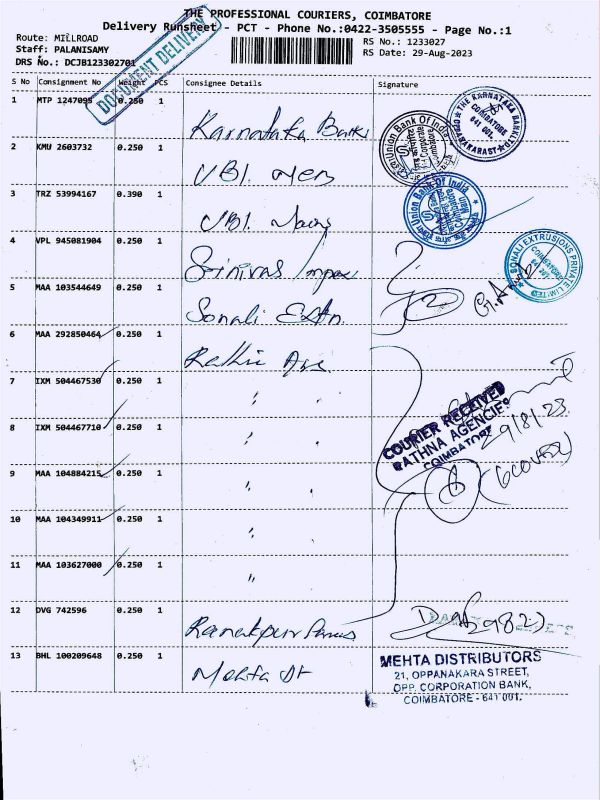 THE PROFESSIONAL COURIERS, COIMBATORE
Delivery Runsheet - PCT - Phone No.:0422-3505555 - Page No.:1
Route: MILLROAD
Staff: PALANISAMY
DRS No.: DCJB123302701
RS No.: 1233027
RS Date: 29-Aug-2023
DOCUMENT DELIVERY
S No Consignment No Weight PCS Consignee Details Signature
1 MTP 1247095 0.250 1 Karnataka Bank
THE KARNATAKA BANK
COIMBATORE
641 001
2 KMU 2603732 0.250 1 UBI
Union Bank Of India
3 TRZ 53994167 0.390 1 UBI
Union Bank Of India
4 VPL 945081904 0.250 1 Srinivas Impex
5 MAA 103544649 0.250 1 Sonali Extn. 2
SONALI EXTRUSIONS PRIVATE LIMITED
COIMBATORE
6 MAA 292850464 0.250 1
7 IXM 504467530 0.250 1 " "
8 IXM 504467710 0.250 1 " "
COURIER RECEIVED
RATHNA AGENCIES
COIMBATORE
29/8/23
6 (6 COVER)
9 MAA 104884215 0.250 1 " "
10 MAA 104349911 0.250 1 " "
11 MAA 103627000 0.250 1 "
12 DVG 742596 0.250 1 Ranakpur
13 BHL 100209648 0.250 1 Mehta Dt
MEHTA DISTRIBUTORS
21, OPPANAKARA STREET,
OPP. CORPORATION BANK,
COIMBATORE - 641 001.